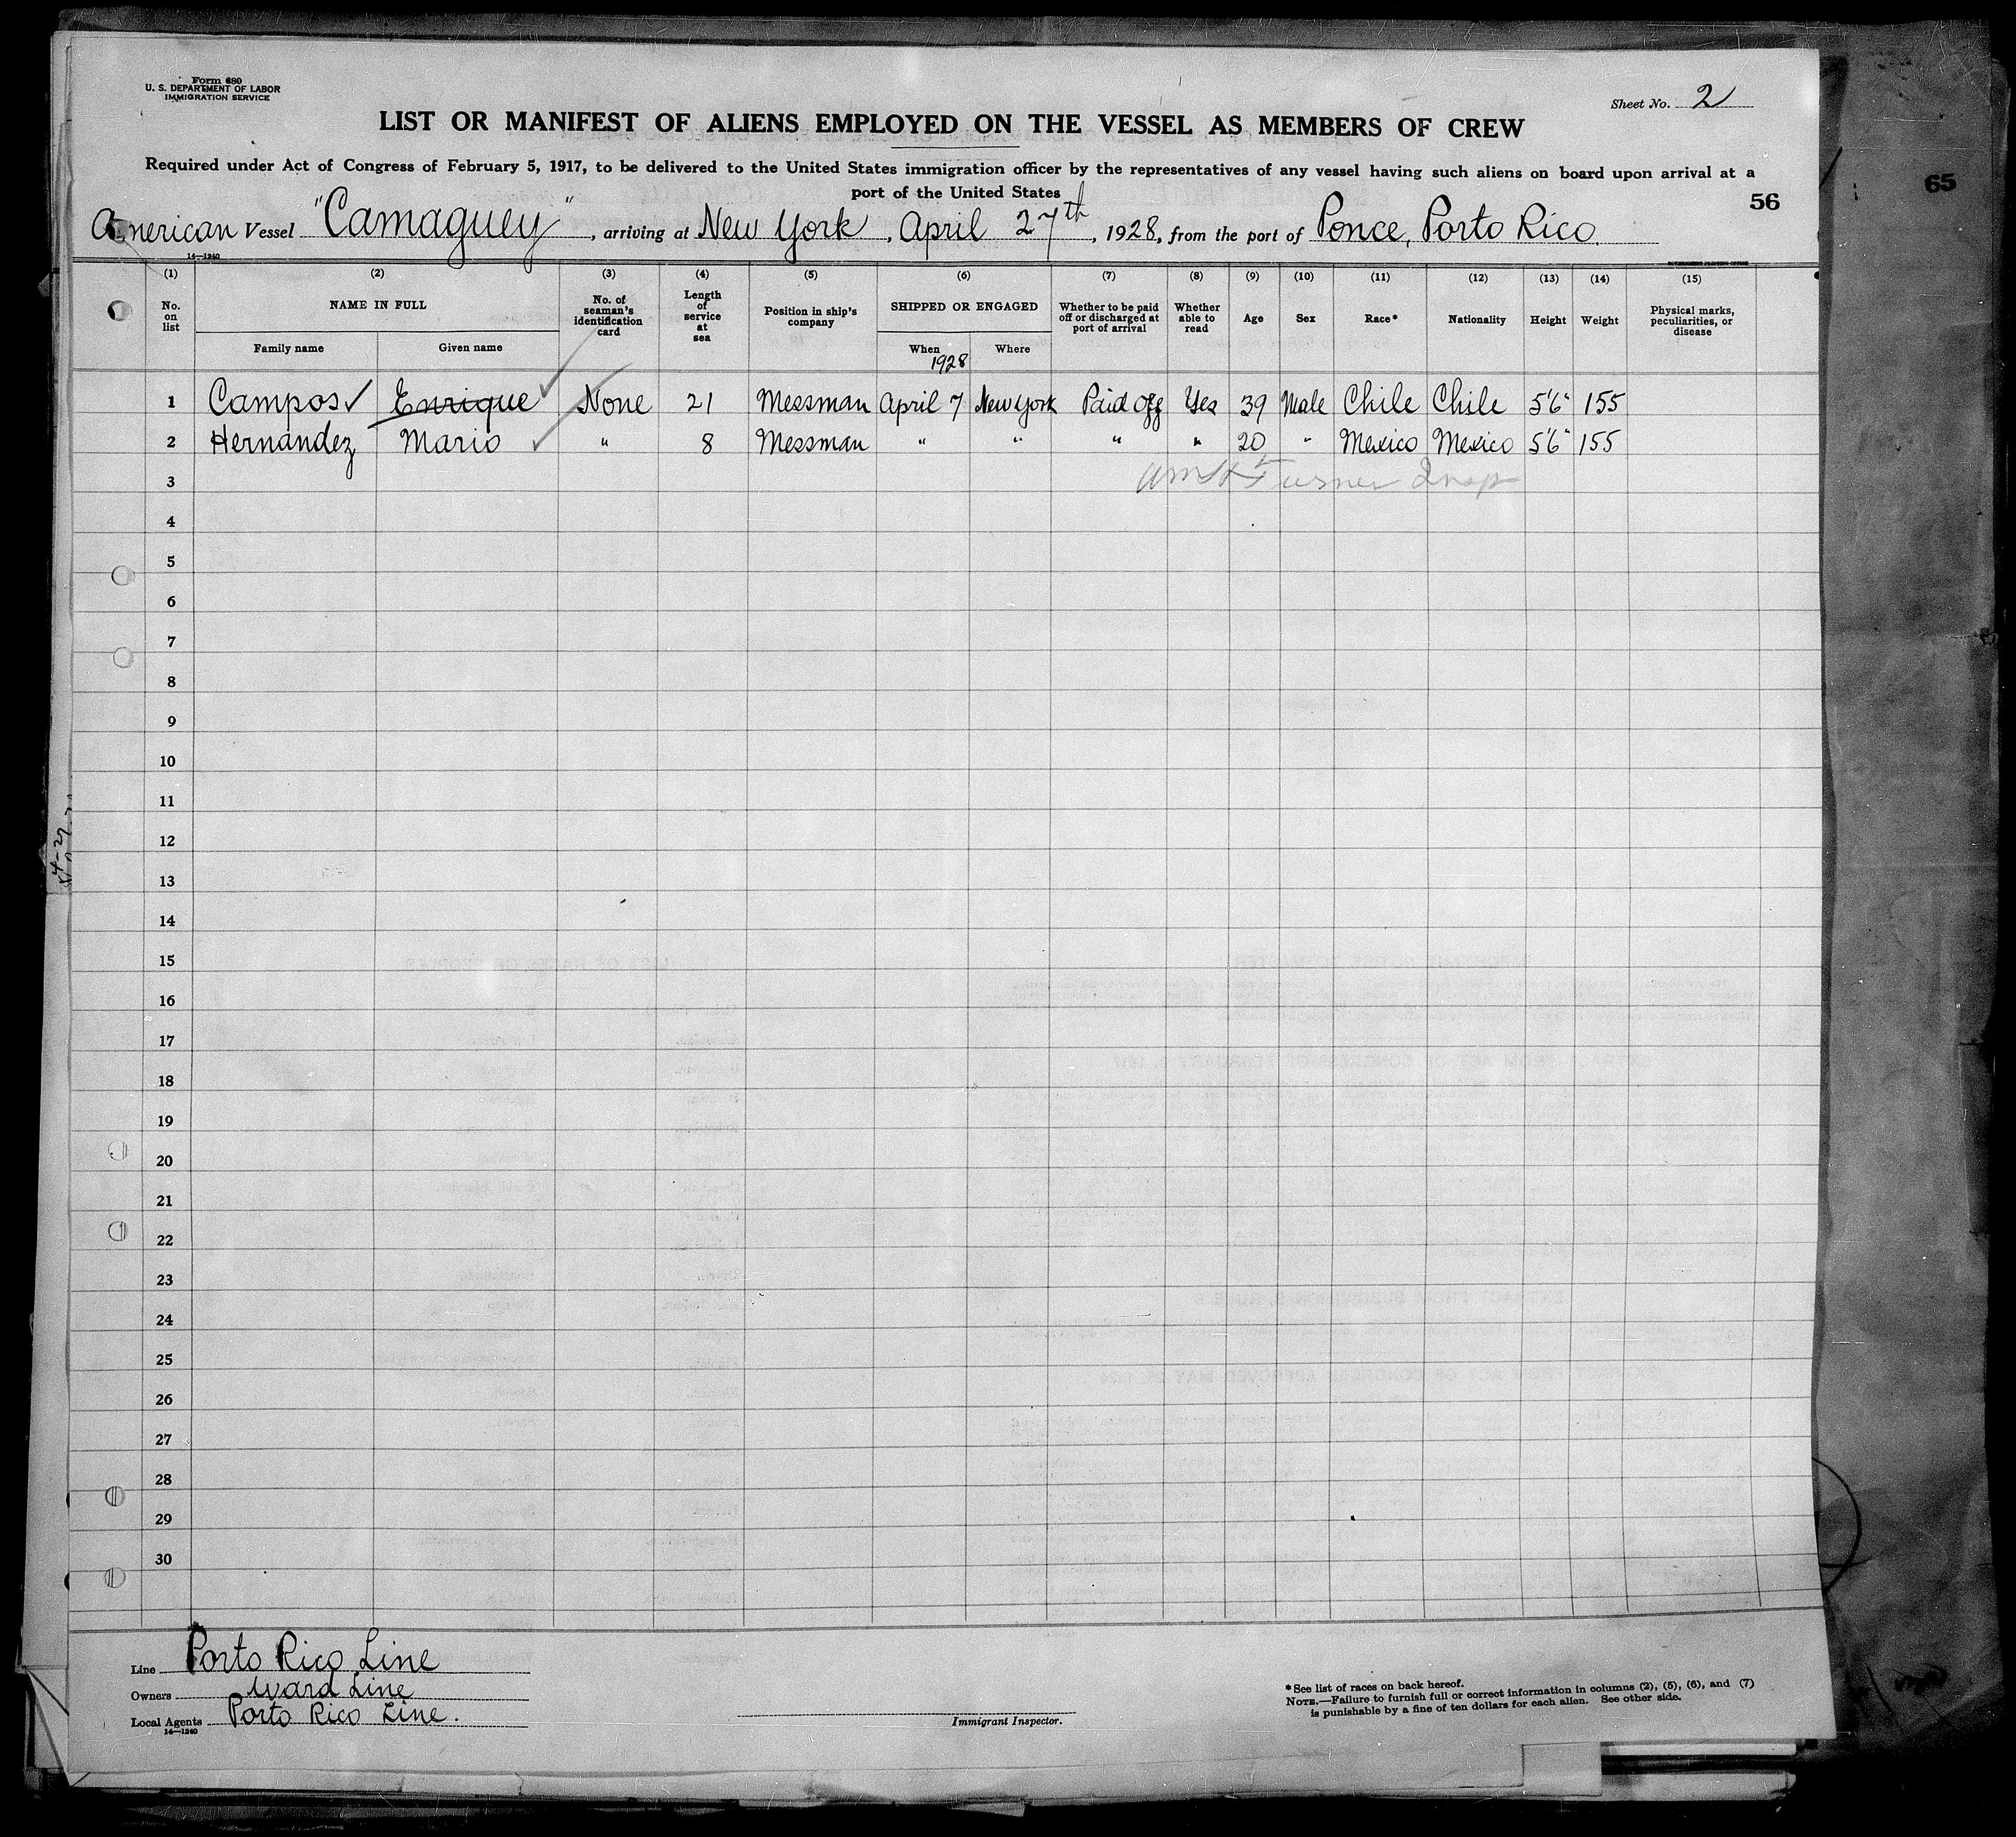 Form 680
U. S. DEPARTMENT OF LABOR
IMMIGRATION SERVICE
Sheet No. 2
LIST OR MANIFEST OF ALIENS EMPLOYED ON THE VESSEL AS MEMBERS OF CREW
Required under Act of Congress of February 5, 1917, to be delivered to the United States immigration officer by the representatives of any vessel having such aliens on board upon arrival at a
port of the United States
56
65
American Vessel "Camaguey", arriving at New York, April 27th, 1928, from the port of Ponce, Porto Rico.
14—1240
(1) (2) (3) (4) (5) (6) (7) (8) (9) (10) (11) (12) (13) (14) (15)
No. on list NAME IN FULL No. of seaman's identification card Length of service at sea Position in ship's company SHIPPED OR ENGAGED Whether to be paid off or discharged at port of arrival Whether able to read Age Sex Race* Nationality Height Weight Physical marks, peculiarities, or disease
Family name Given name When Where
1928
1 Campos Enrique None 21 Messman April 7 New York Paid off Yes 39 Male Chile Chile 5'6" 155
2 Hernandez Mario " 8 Messman " " " " 20 " Mexico Mexico 5'6" 155
3 Turner Insp
4
5
6
7
8
9
10
11
12
13
14
15
16
17
18
19
20
21
22
23
24
25
26
27
28
29
30
4-27
Line Porto Rico Line
Owners Ward Line
Local Agents Porto Rico Line.
14—1240
Immigrant Inspector.
*See list of races on back hereof.
NOTE.—Failure to furnish full or correct information in columns (2), (5), (6), and (7)
is punishable by a fine of ten dollars for each alien. See other side.